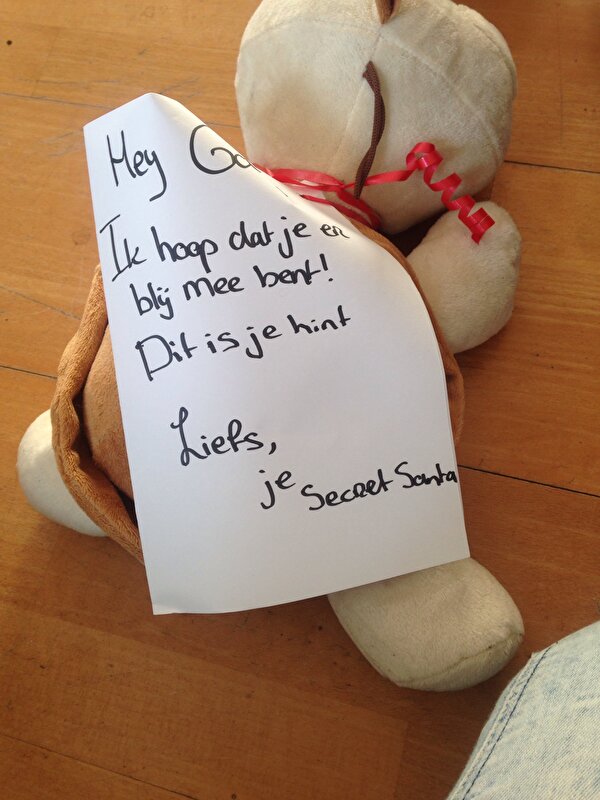 Hey
Ik hoop dat je er
blij mee bent!
Dit is je hint
Liefs,
je Secret Santa